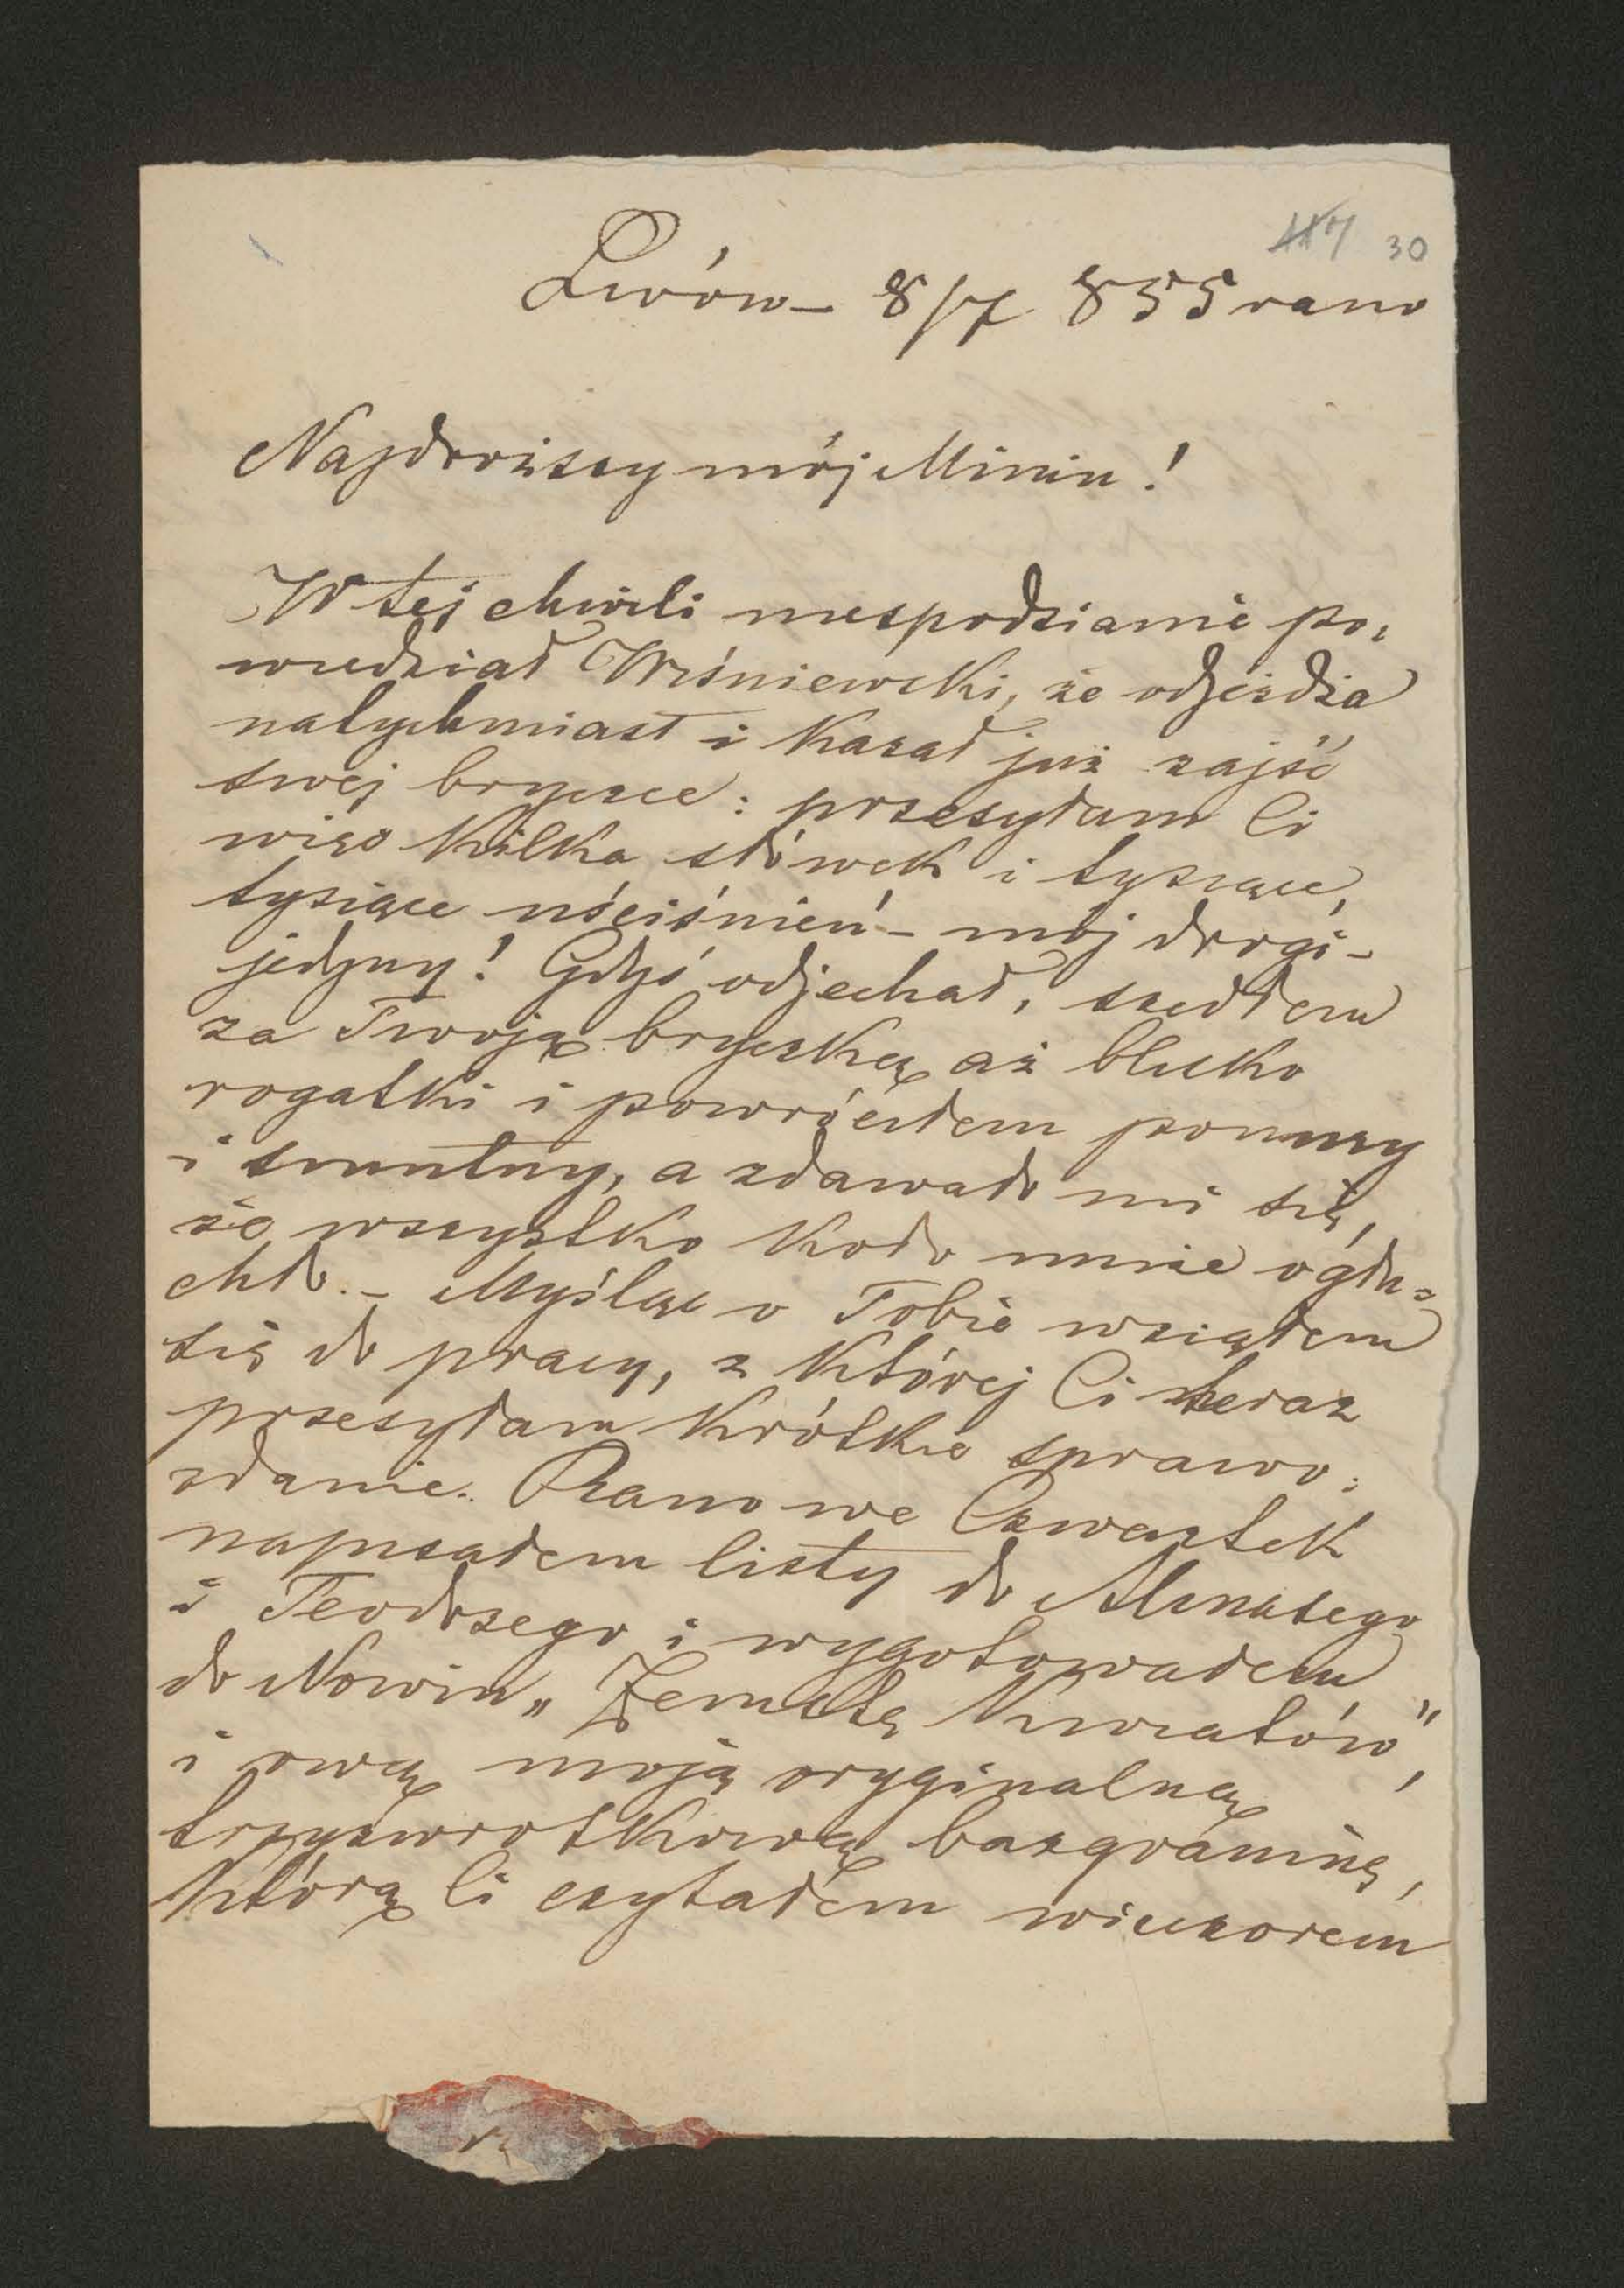 117 30
Lwów – 8/7 855 rano
Najdroższy mój Miniu!
W tej chwili niespodzianie po=
wiedział Wiśniewski, że odjeżdża
natychmiast i kazał już zajść
swej bryczce: przesyłam Ci
więc kilka słówek i tysiące,
tysiące uściśnień – mój drogi –
jedyny! Gdyś odjechał, szedłem
za Twoją bryczką aż blisko
rogatki i powróciłem ponury
i smutny, a zdawało mi się,
że wszystko koło mnie ogłu=
chło. – Myśląc o Tobie wziąłem
się do pracy, z której Ci teraz
przesyłam krótkie sprawo=
zdanie. Rano we Czwartek
napisałem listy do Almasego
i Teodozego i wygotowałem
do Nowin „Zemstę Kwiatów",
i ową moją oryginalną
trzyzwrotkową bazgraninę,
którą Ci czytałem wieczorem